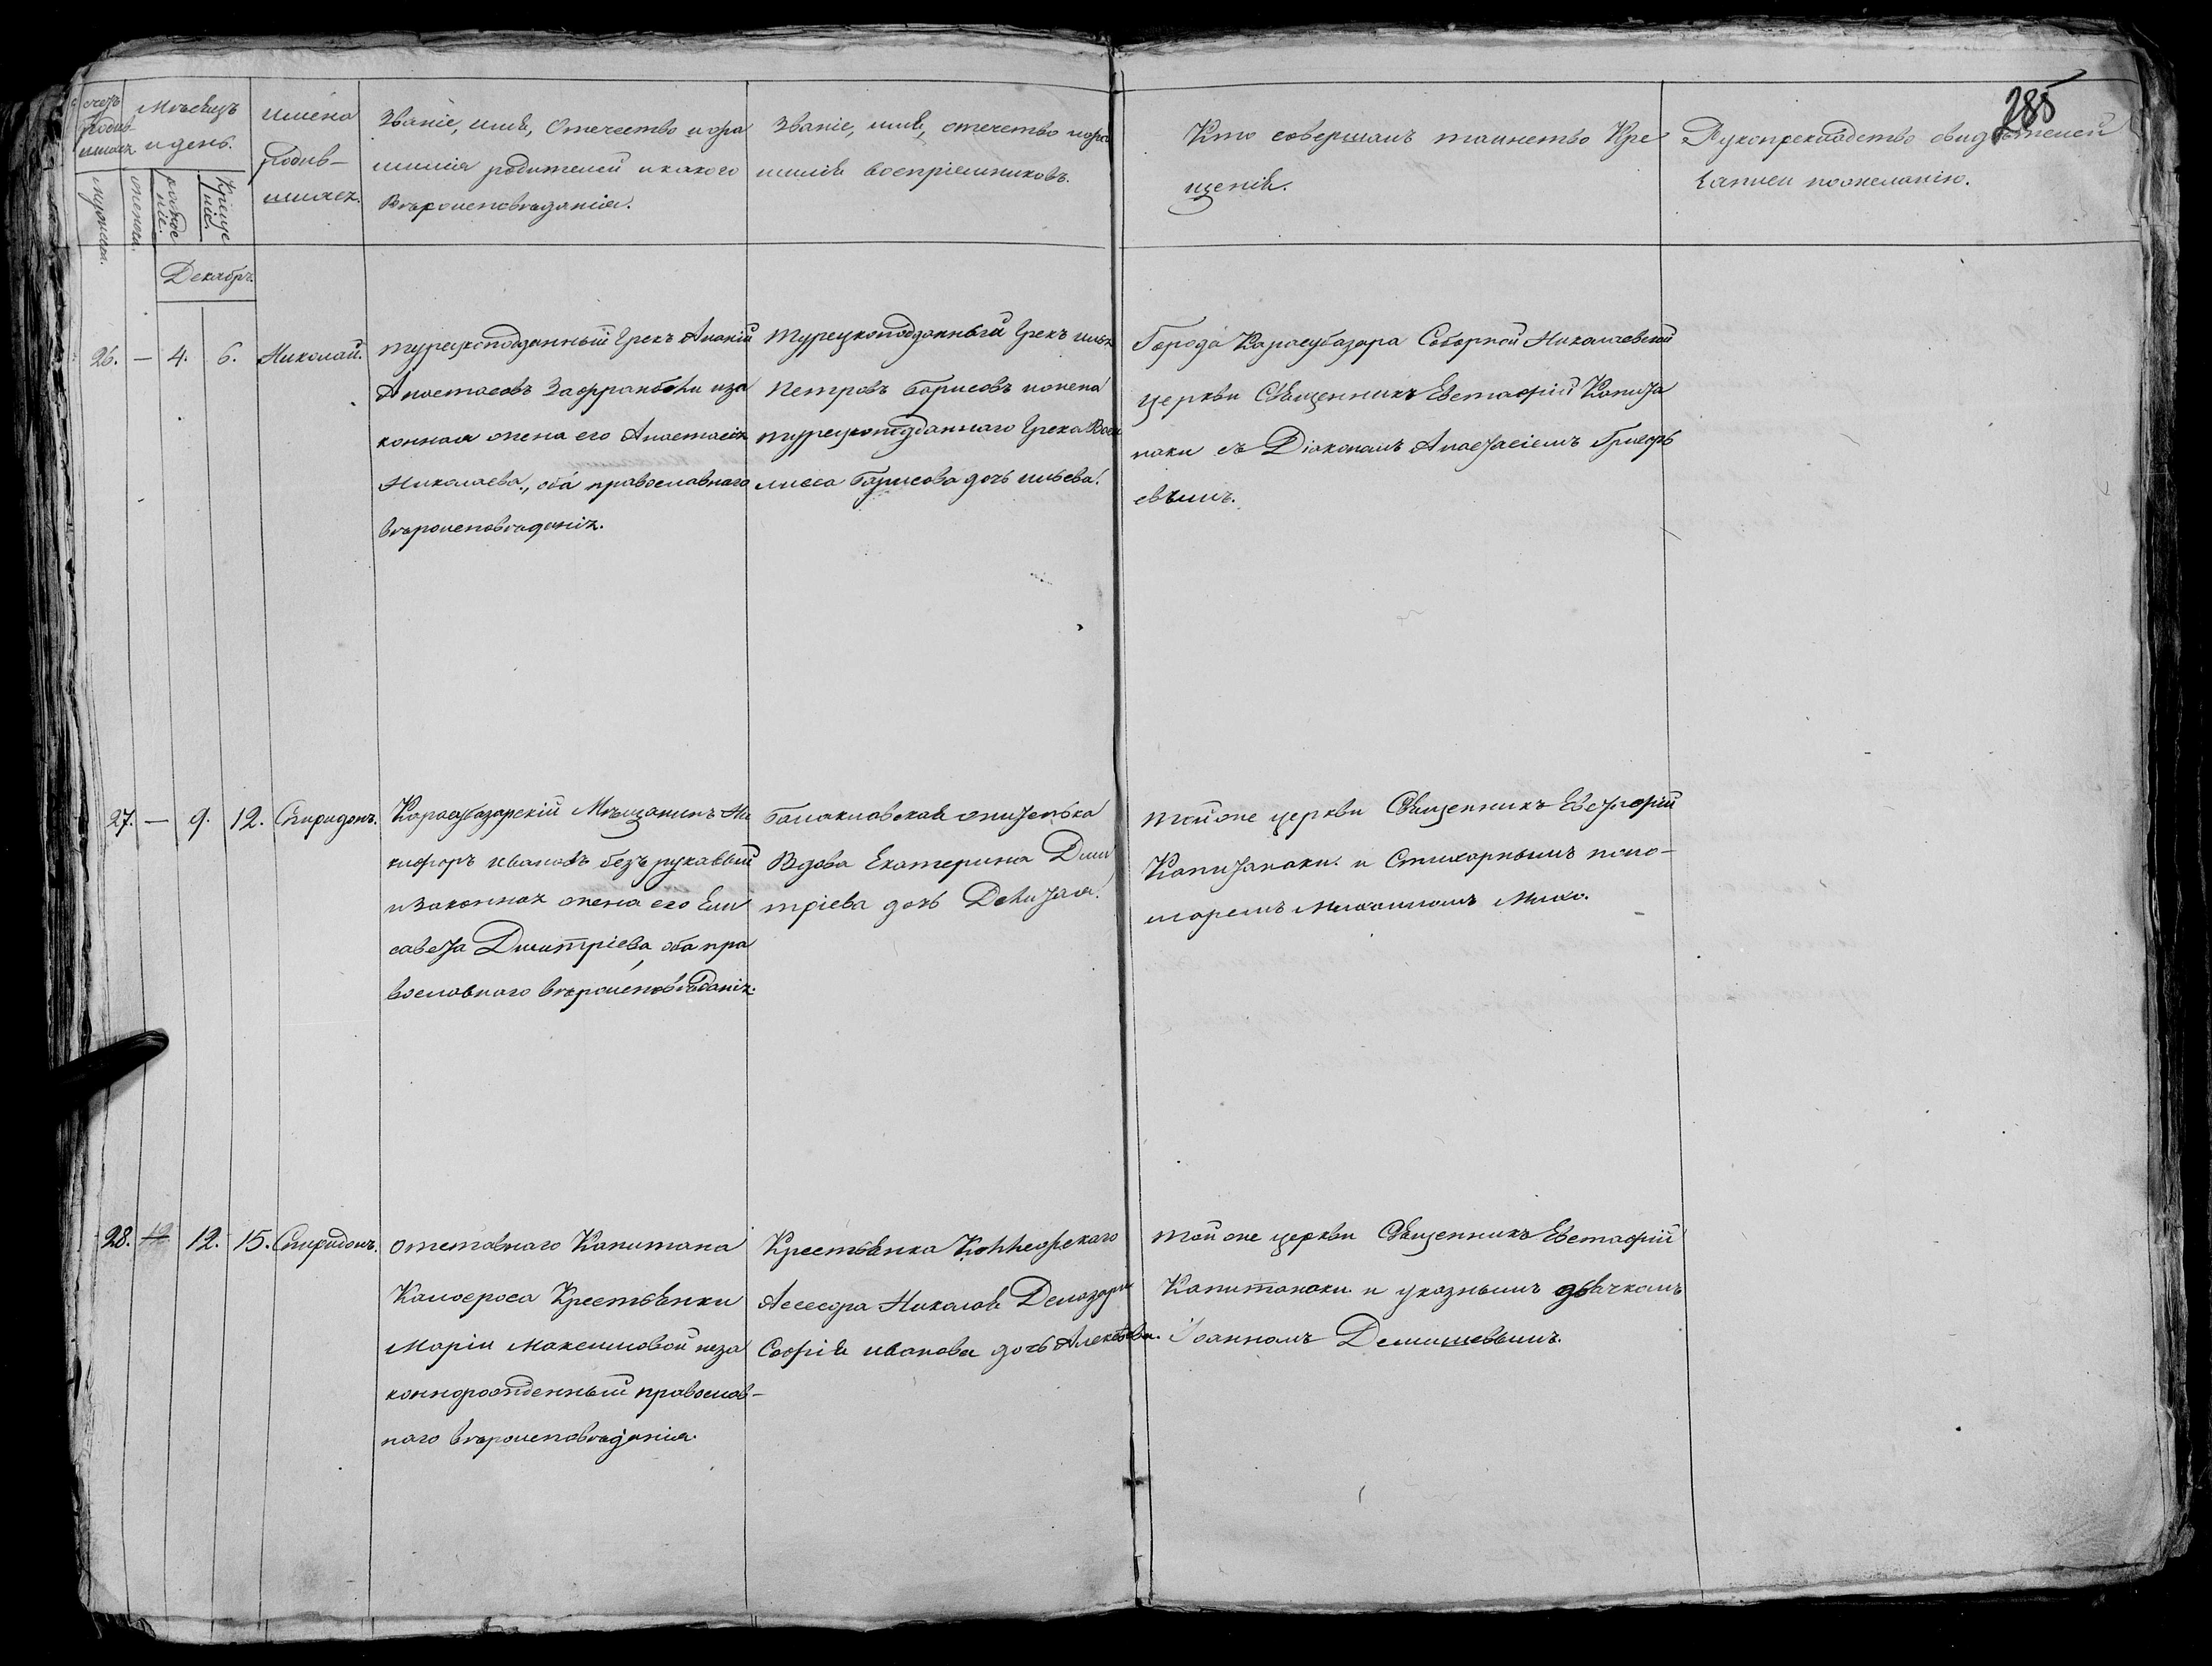 285
Счетъ родив-шихся
Мѣсяцъ и день.
имена родив-шихся.
Званіе, имя, Отечество и фа
милія родителей и какого
Вѣроисповѣданія.
Званіе, имя, отечество и фа
милія воспріемниковъ.
Кто совершалъ таинство Кре
щенія.
Рукоприкладство свидѣтелей
записи по желанію.
мужеска.
женска.
рожде
ніе.
Креще
ніе.
Декабрь.
26. — 4. 6. Николай.
турецкоподданный Грекъ Ананій
Анастасовъ Зафранбеки и за
конная жена его Анастасія
Николаева, оба православнаго
вѣроисповѣданія.
Турецкоподданный Грекъ илья
Петровъ Борисовъ и жена
турецкоподданнаго Грека Васи
лиса Борисова дочь ильева.
Города Карасубазара Соборной Николаевской
церкви Священникъ Евстафій Капита
наки съ Діакономъ Анастасіемъ Григорь
евымъ.
27. — 9. 12. Спиридонъ.
Карасубазарскій Мѣщанинъ Ни
кифоръ Ивановъ безрукавый
и законная жена его Ели
савета Димитріева, оба пра
вославнаго вѣроисповѣданія.
Балаклавская жителька
Вдова Екатерина Дими
тріева дочь
той же церкви Священникъ Евстафій
Капитанаки и Стихарнымъ поно-
маремъ Михаиломъ
28. — 12. 15. Спиридонъ.
отставнаго Капитана
Крестьянки
Маріи Максимовой неза
коннорожденный православ-
наго вѣроисповѣданія.
Крестьянка Коллежскаго
Асессора Николая
Софія иванова дочь
той же церкви Священникъ Евстафій
Капитанаки и указнымъ дьячкомъ
Іоанномъ